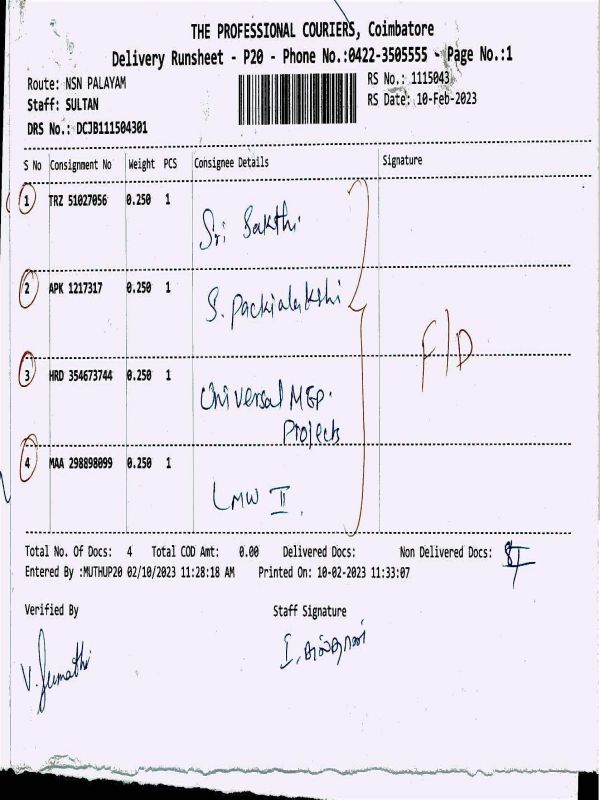 THE PROFESSIONAL COURIERS, Coimbatore
Delivery Runsheet - P20 - Phone No.:0422-3505555 - Page No.:1
Route: NSN PALAYAM
RS No.: 1115043
Staff: SULTAN
RS Date: 10-Feb-2023
DRS No.: DCJB111504301
S No Consignment No Weight PCS Consignee Details Signature
1 TRZ 51027056 0.250 1
Sri Sakthi
2 APK 1217317 0.250 1
S. Packialakshi
F/D
3 HRD 354673744 0.250 1
Universal MEP.
Projects
4 MAA 298898099 0.250 1
LMW II.
Total No. Of Docs: 4 Total COD Amt: 0.00 Delivered Docs: Non Delivered Docs:
Entered By :MUTHUP20 02/10/2023 11:28:18 AM Printed On: 10-02-2023 11:33:07
Verified By Staff Signature
V. Sumathi
I. சுல்தான்